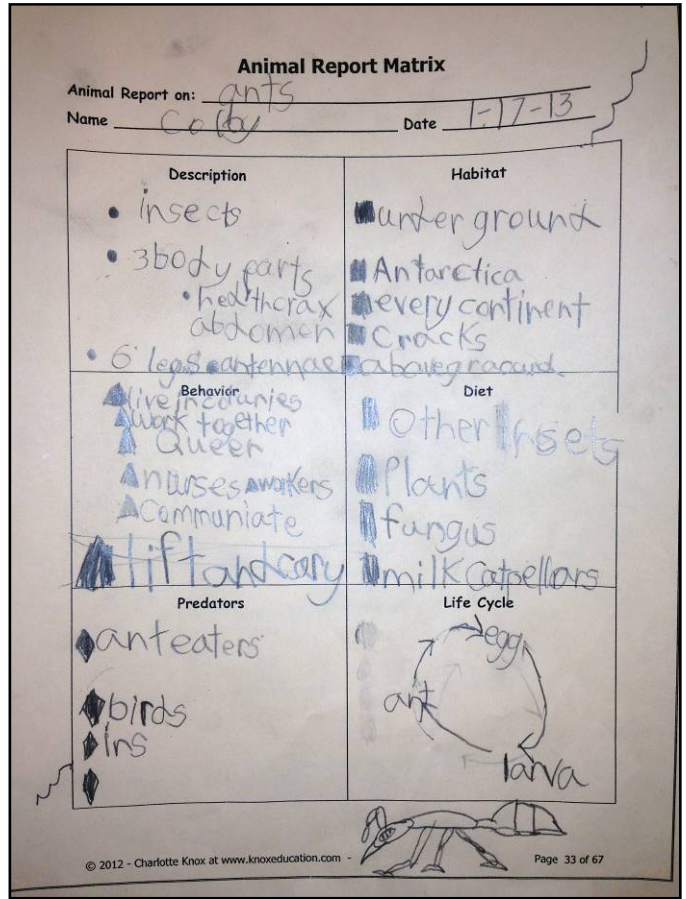 Animal Report Matrix
Animal Report on: ants
Name Colby Date 1-17-13
Description
• insects
• 3 body parts
• hed thorax
abdomen
• 6 legs • antennae
Habitat
under ground
Antarctica
every continent
Cracks
above graound.
Behavior
live in
Work together
Queer
nurses workers
Communiate
lift and cary
Diet
Other Insets
Plants
fungus
milk Catpellars
Predators
anteaters
birds
ins
Life Cycle
egg
larva
ant
© 2012 - Charlotte Knox at www.knoxeducation.com - Page 33 of 67